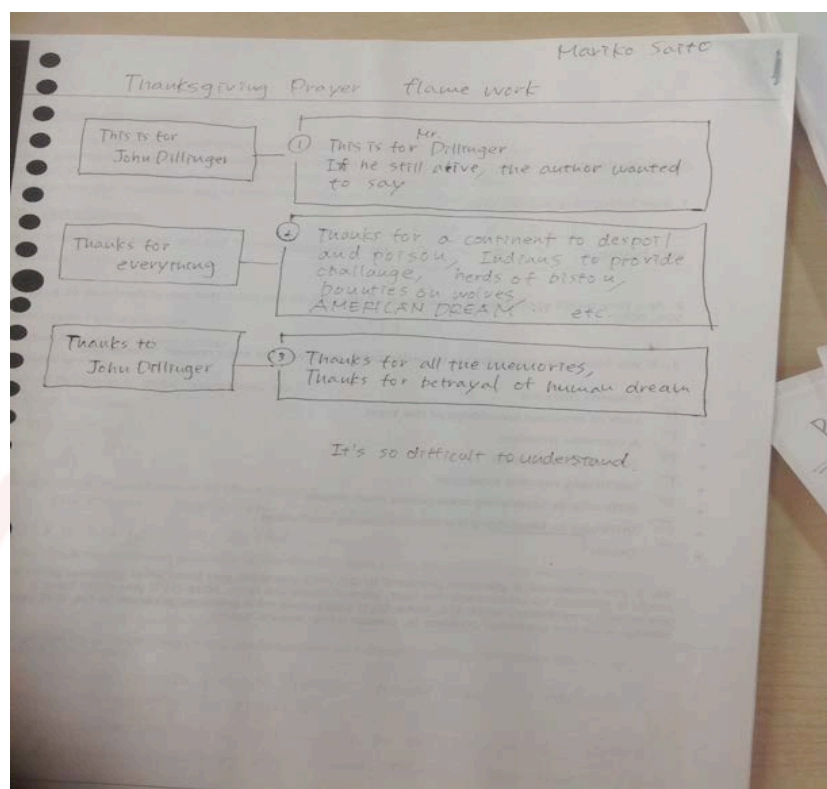 Mariko Saito
Thanksgiving Prayer flame work
This is for
John Dillinger
① This is for Mr. Dillinger
If he still alive, the author wanted
to say
Thanks for
everything
② Thanks for a continent to despoil
and poison, Indians to provide
challauge, herds of bistou,
bounties on wolves,
AMERICAN DREAM etc.
Thanks to
John Dillinger
③ Thanks for all the memories,
Thanks for betrayal of human dream
It's so difficult to understand.